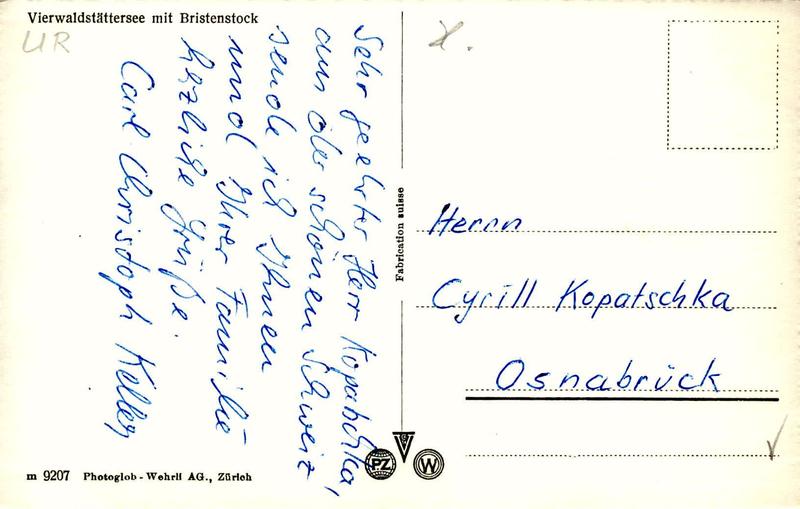 Vierwaldstättersee mit Bristenstock
UR
Sehr geehrter Herr Kopatschka,
aus der schönen Schweiz
sende ich Ihnen
und Ihrer Familie
herzliche Grüße.
Carl Christoph Keller
Fabrication suisse
Herrn
Cyrill Kopatschka
Osnabrück
PZ
W
m 9207 Photoglob-Wehrli AG., Zürich